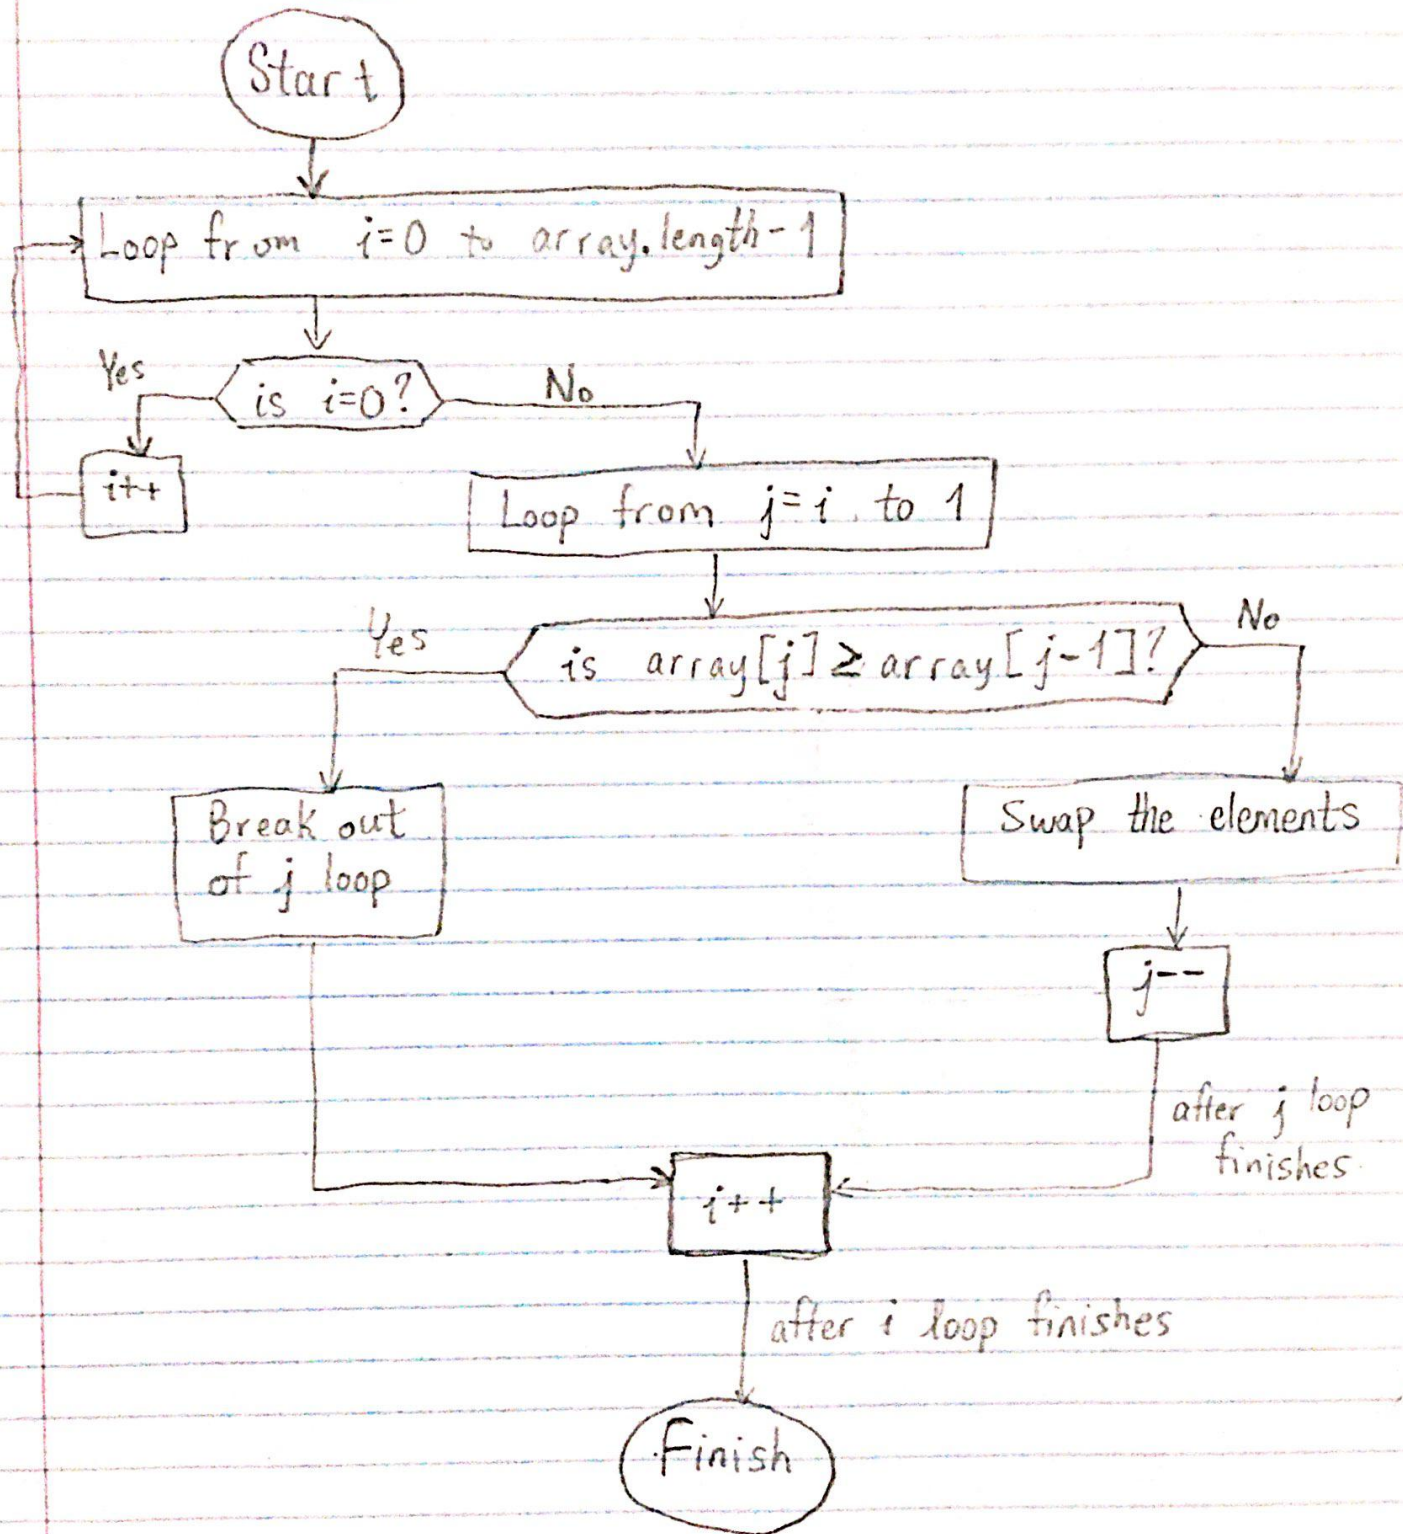 Start
Loop from i=0 to array.length-1
Yes
is i=0?
No
i++
Loop from j=i to 1
Yes
is array[j]≥array[j-1]?
No
Break out
of j loop
Swap the elements
j--
after j loop
finishes
i++
after i loop finishes
Finish